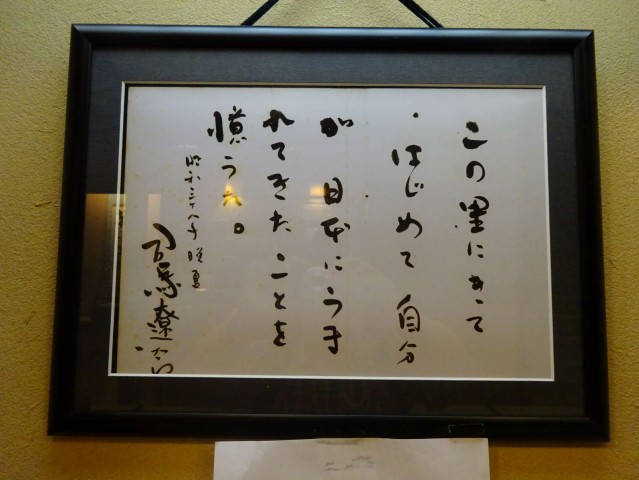 この里にあって
・はじめて自分
が日本にうま
れてきたことを
憶うた。
昭和三十八年晩夏
司馬遼太郎